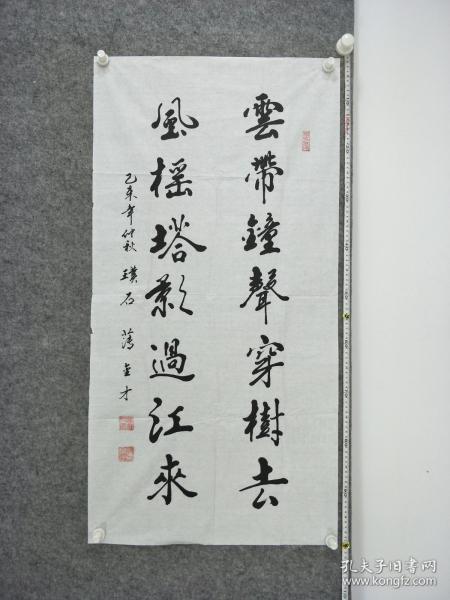 雲帶鐘聲穿樹去
風搖塔影過江來
乙未年仲秋 璞石 薄 才
孔夫子旧书网
www.kongfz.com